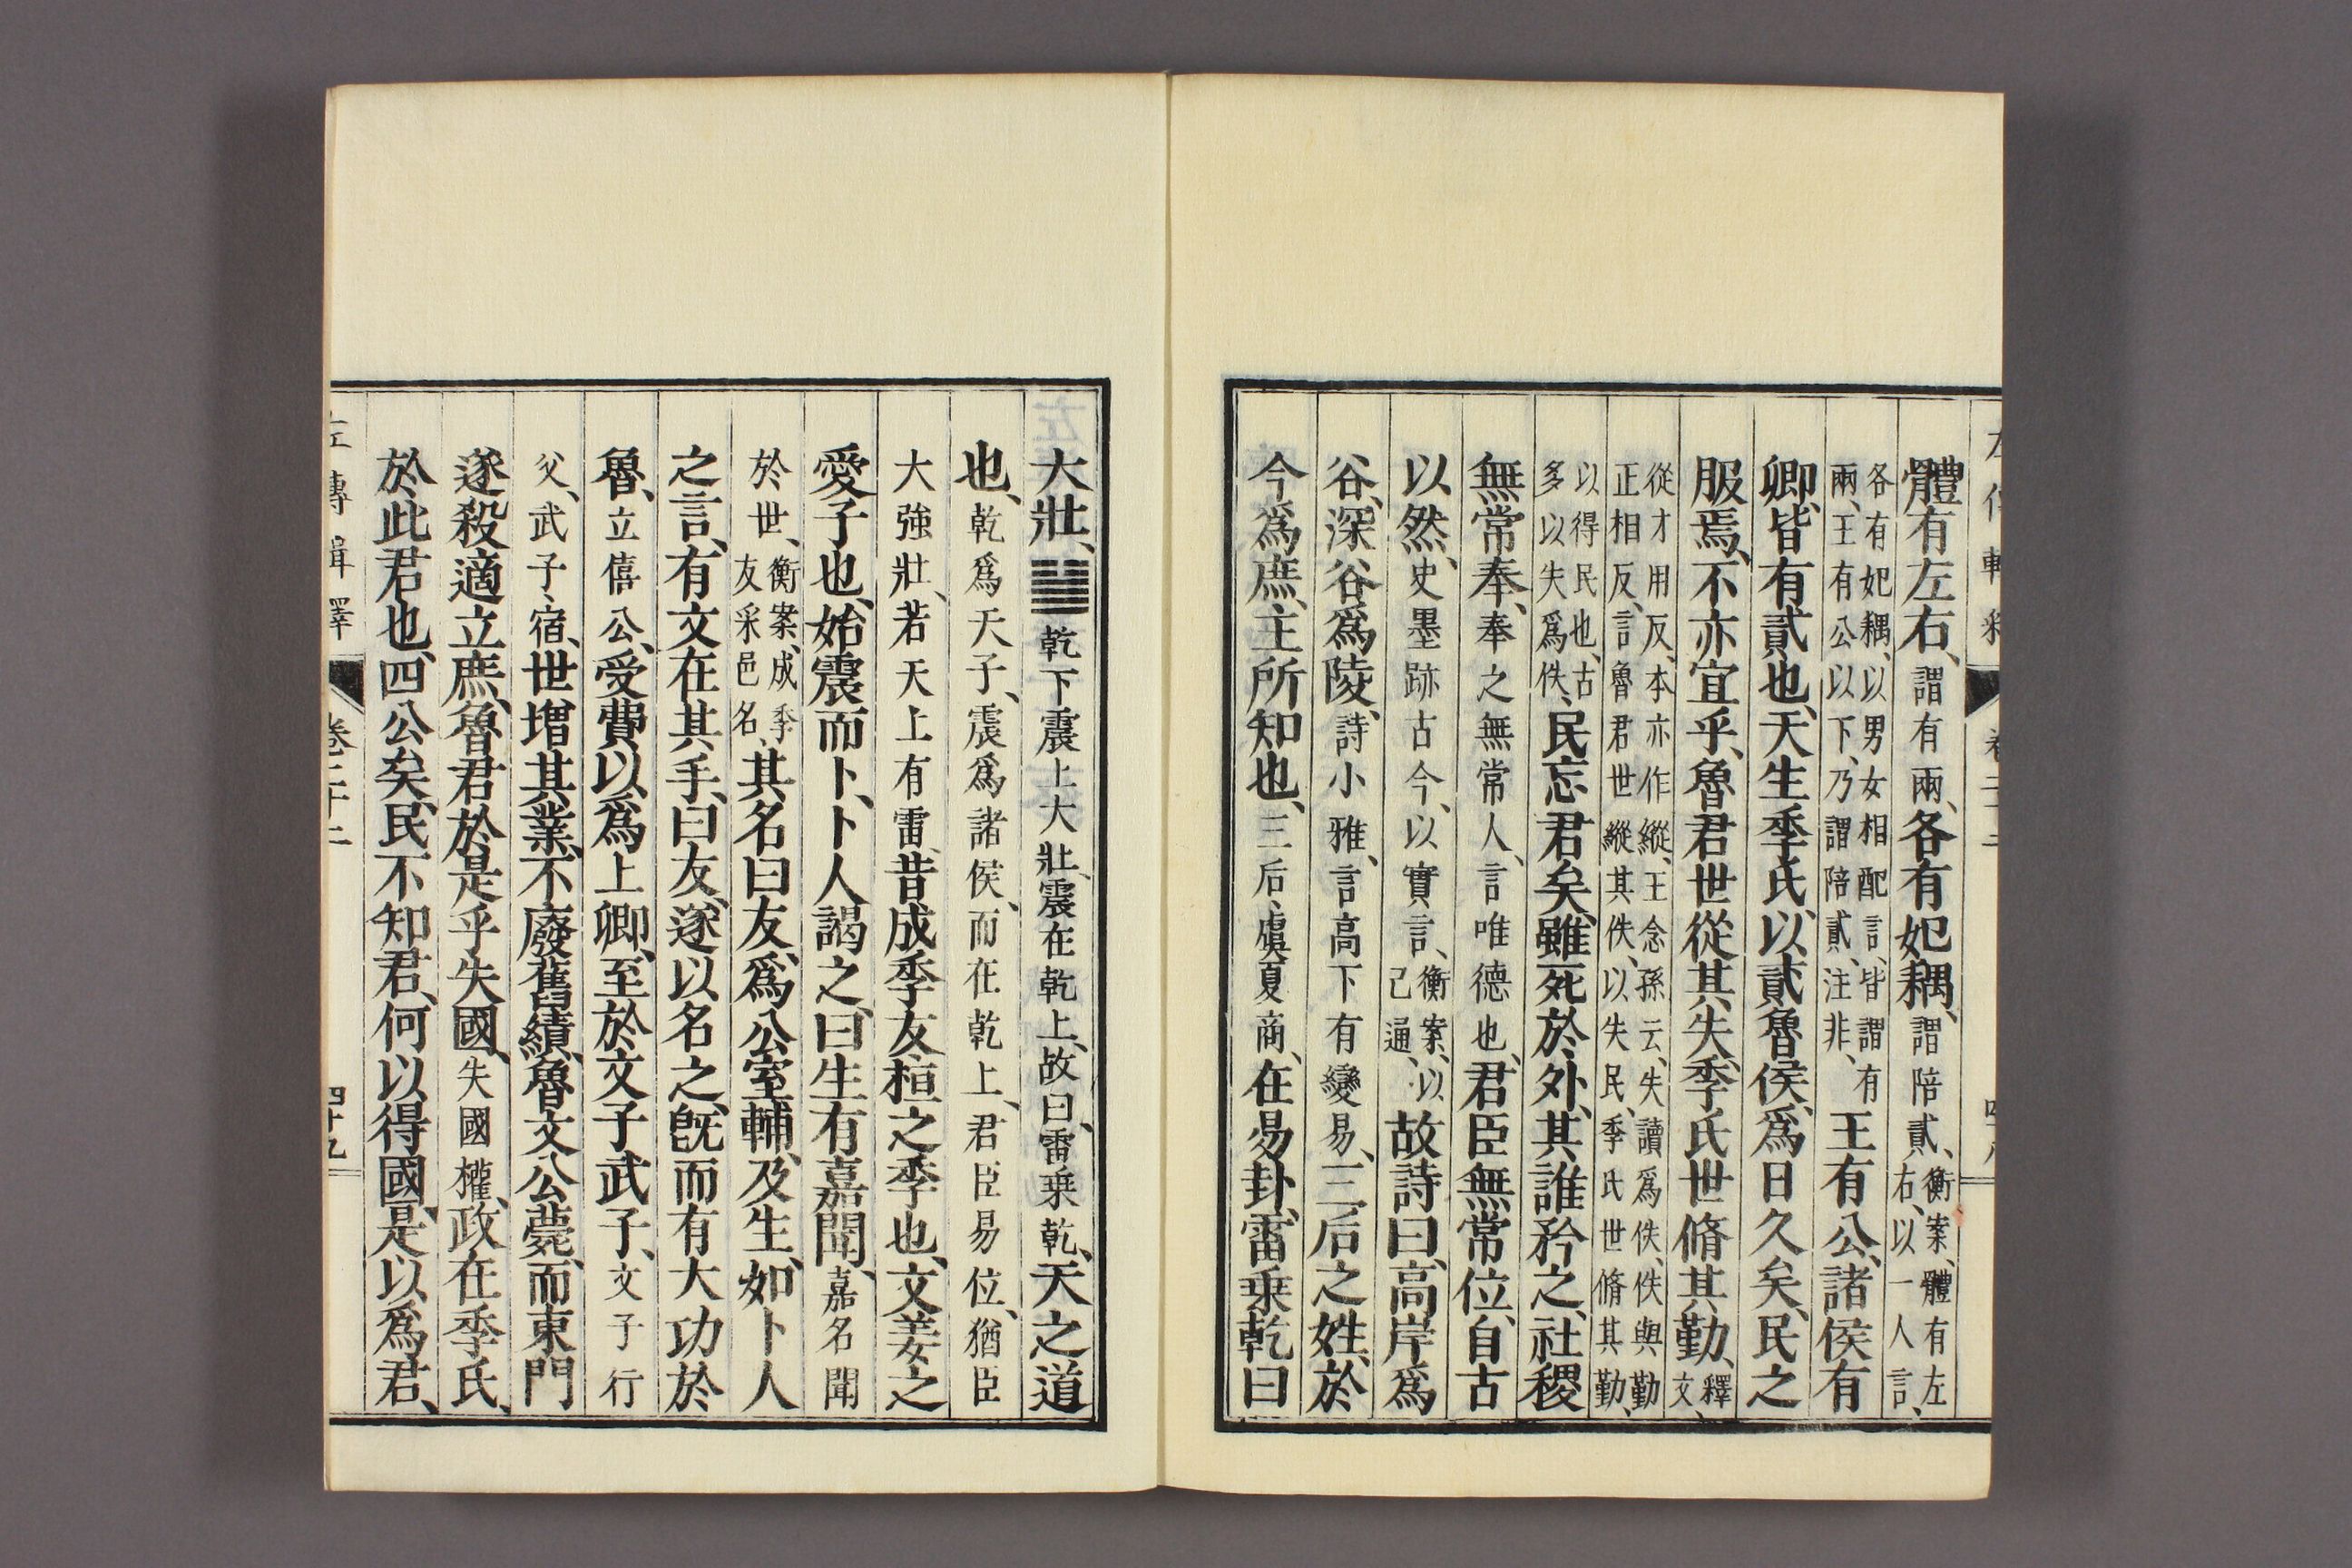 體有左右、謂有兩、各有妃耦、謂陪貳、衡案、體有左右、以一人言、
各有妃耦、以男女相配言、皆謂有兩、王有公以下、乃謂陪貳、注非、王有公、諸侯有
卿、皆有貳也、天生季氏、以貳魯侯、爲日久矣、民之
服焉、不亦宜乎、魯君世從其失、季氏世脩其勤、釋文、
從才用反、本亦作縱、王念孫云、失讀爲佚、佚與勤
正相反、言魯君世縱其佚、以失民、季氏世脩其勤、
以得民也、古多以失爲佚、民忘君矣、雖死於外、其誰矜之、社稷
無常奉、奉之無常人、言唯德也、君臣無常位、自古
以然、史墨跡古今、以實言、衡案、以已通、故詩曰、高岸爲
谷、深谷爲陵、詩小雅、言高下有變易、三后之姓、於
今爲庶、主所知也、三后、虞夏商、在易卦、雷乗乾曰
大壯、䷡乾下震上大壯、震在乾上、故曰、雷乗乾、天之道
也、乾爲天子、震爲諸侯、而在乾上、君臣易位、猶臣
大強壯、若天上有雷、昔成季友、桓之季也、文姜之
愛子也、始震而卜、卜人謁之、曰生有嘉聞、嘉名聞
於世、衡案、成季友采邑名、其名曰友、爲公室輔、及生、如卜人
之言、有文在其手、曰友、遂以名之、旣而有大功於
魯、立僖公、受費以爲上卿、至於文子武子、文子行
父、武子宿、世增其業、不廢舊績、魯文公薨、而東門
遂殺適立庶、魯君於是乎失國、失國權、政在季氏、
於此君也、四公矣、民不知君、何以得國、是以爲君、
左傳輯釋 卷二十二 四十九